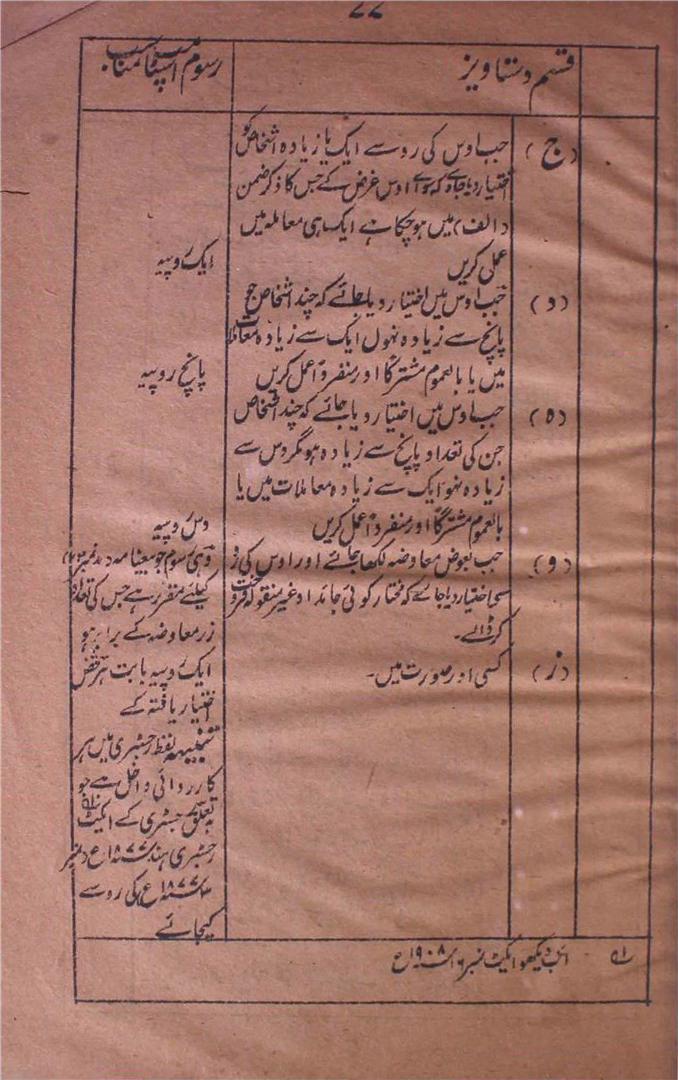 ۷۷
قسم دستاویز
رسوم اسٹامپ مناسب
(ج) جب اوس کی رو سے ایک یا زیادہ اشخاص کو
اختیار دیا جاوے کہ سوے اوس غرض کے جس کا ذکر ضمن
(الف) میں ہوچکا ہے ایک ہی معاملہ میں
عمل کریں
ایک روپیہ
(د) جب اوس میں اختیار دیا جائے کہ چند اشخاص جو
پانچ سے زیادہ نہوں ایک سے زیادہ معاملات
میں یا بالعموم مشترکاً اور منفرداً عمل کریں
پانچ روپیہ
(ہ) جب اوس میں اختیار دیا جائے کہ چند اشخاص
جن کی تعداد پانچ سے زیادہ ہو مگر دس سے
زیادہ نہو ایک سے زیادہ معاملات میں یا
بالعموم مشترکاً اور منفرداً عمل کریں
دس روپیہ
(و) جب بعوض معاوضہ لکھا جائے اور اوس کی رو
سی اختیار دیا جائے کہ مختار کوئی جائداد غیر منقولہ فروخت
کر ڈالے۔
وہی رسوم جو بیعنامہ (مد نمبر ۲۳)
کیلئے مقرر ہے جس کی تعداد
زر معاوضہ کے برابر ہو
(ز) کسی اور صورت میں۔
ایک روپیہ بابت ہر شخص
اختیار یافتہ کے
تنبیہہ لفظ رجسٹری میں ہر
کارروائی داخل ہے جو
بہ تعلق رجسٹری کے ایکٹ
رجسٹری ہند ۱۸۷۷ع (نمبر
۳ ۱۸۷۷ع) کی رو سے
کیجائے
۱؎ اب دیکھو ایکٹ نمبر ۱۶ ۱۹۰۸ع